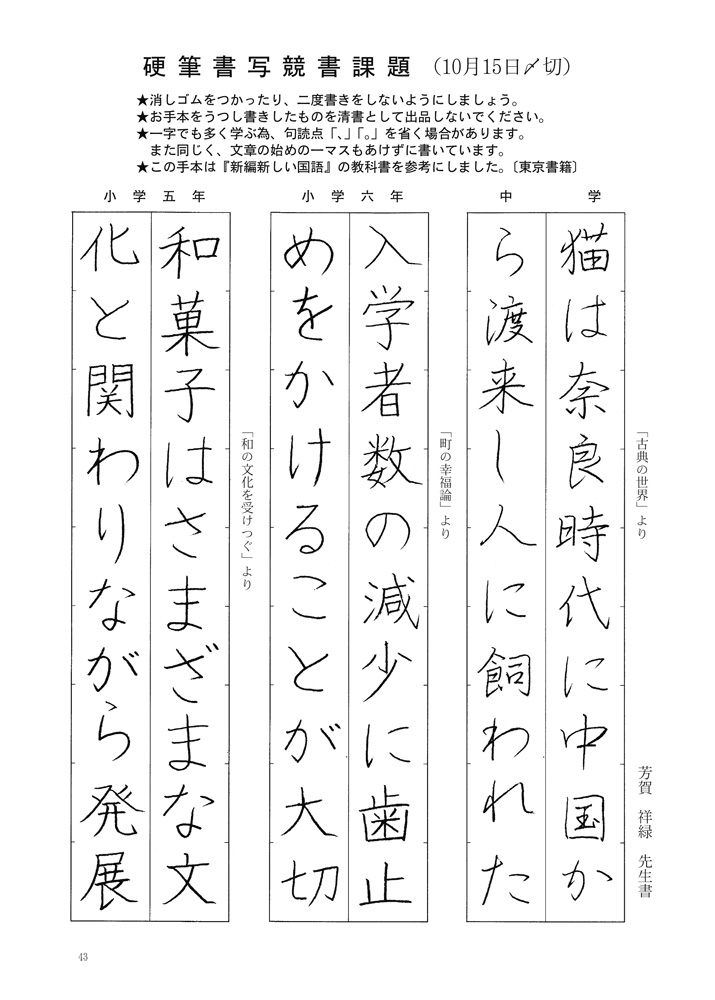 硬筆書写競書課題（10月15日〆切）
★消しゴムをつかったり、二度書きをしないようにしましょう。
★お手本をうつし書きしたものを清書として出品しないでください。
★一字でも多く学ぶ為、句読点「、」「。」を省く場合があります。
また同じく、文章の始めの一マスもあけずに書いています。
★この手本は『新編新しい国語』の教科書を参考にしました。〔東京書籍〕
中学
「古典の世界」より
芳賀 祥緑 先生書
猫は奈良時代に中国か
ら渡来し人に飼われた
小学六年
「町の幸福論」より
入学者数の減少に歯止
めをかけることが大切
小学五年
「和の文化を受けつぐ」より
和菓子はさまざまな文
化と関わりながら発展
43